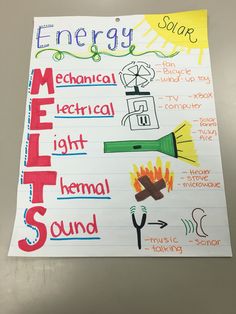 Energy
SOLAR
Mechanical
- fan
- Bicycle
- wind-up toy
Electrical
- TV
- computer
- XBOX
Light
- Solar
- fire
Thermal
- Heater
- stove
- microwave
Sound
- music
- talking
- sonar